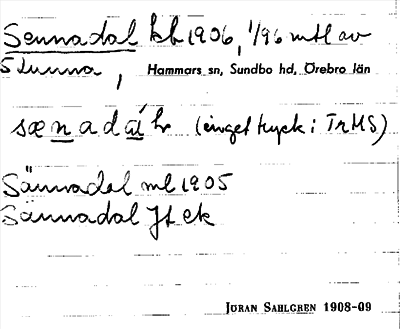 Sennadal kb 1906, 1/96 mtl av
S Lunna, Hammars sn, Sundbo hd, Örebro län
(inget tryck i TrHS)
Sännadal ml 1905
Sännadal Jt ek
JÖRAN SAHLGREN 1908-09